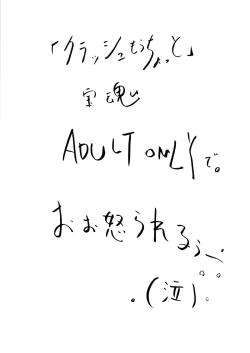 「クラッシュもうちょっと」
宝魂
ADULT ONLYで。
おお怒られるぅ
(泣)